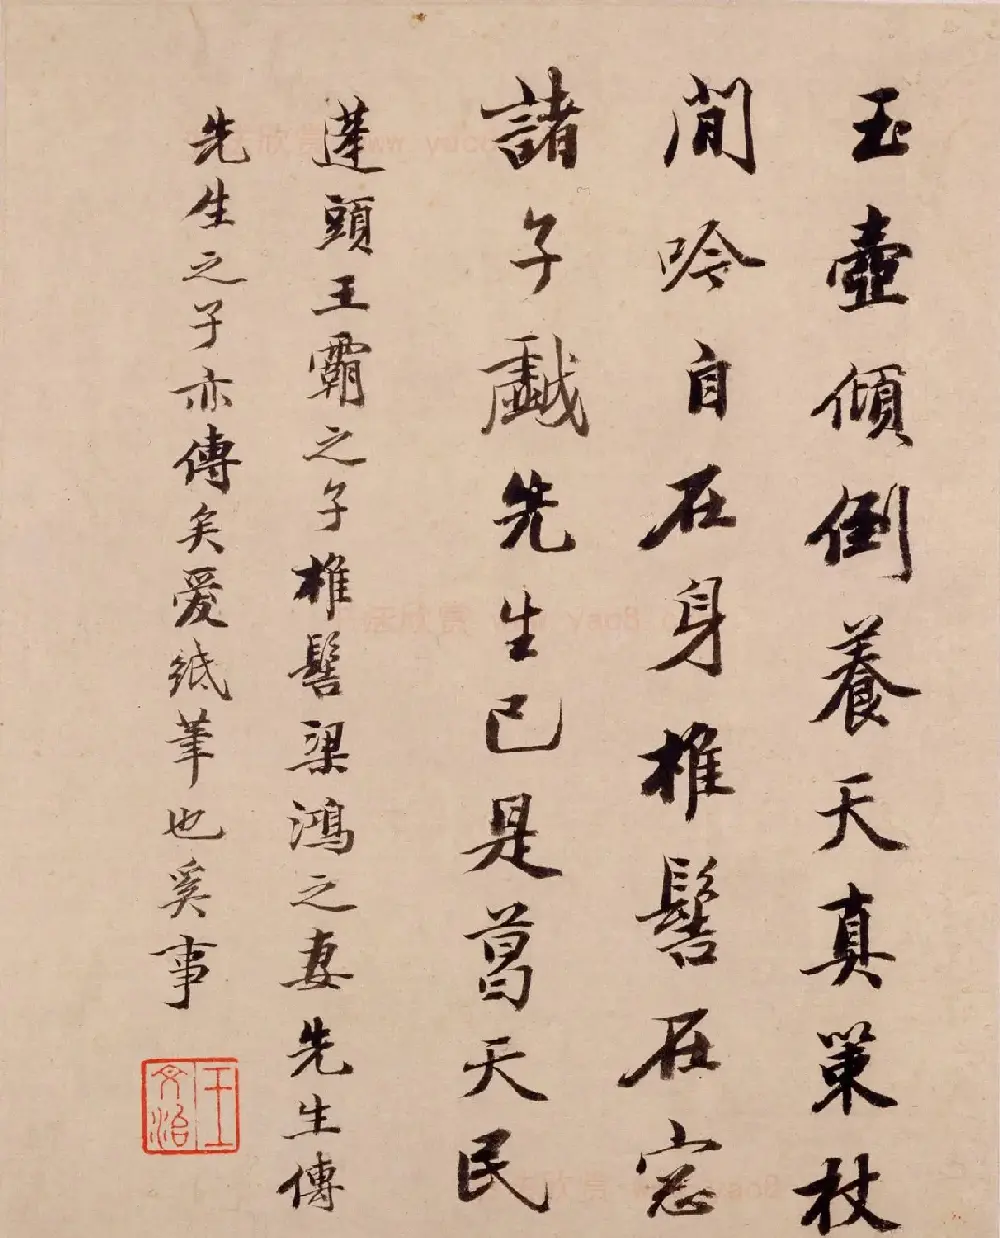 玉壺傾倒養天真策杖
閒吟自在身椎髻在窓
諸子戱先生已是葛天民
蓬頭王霸之子椎髻梁鴻之妻先生傳
先生之子亦傳矣愛紙筆也奚事
王文治